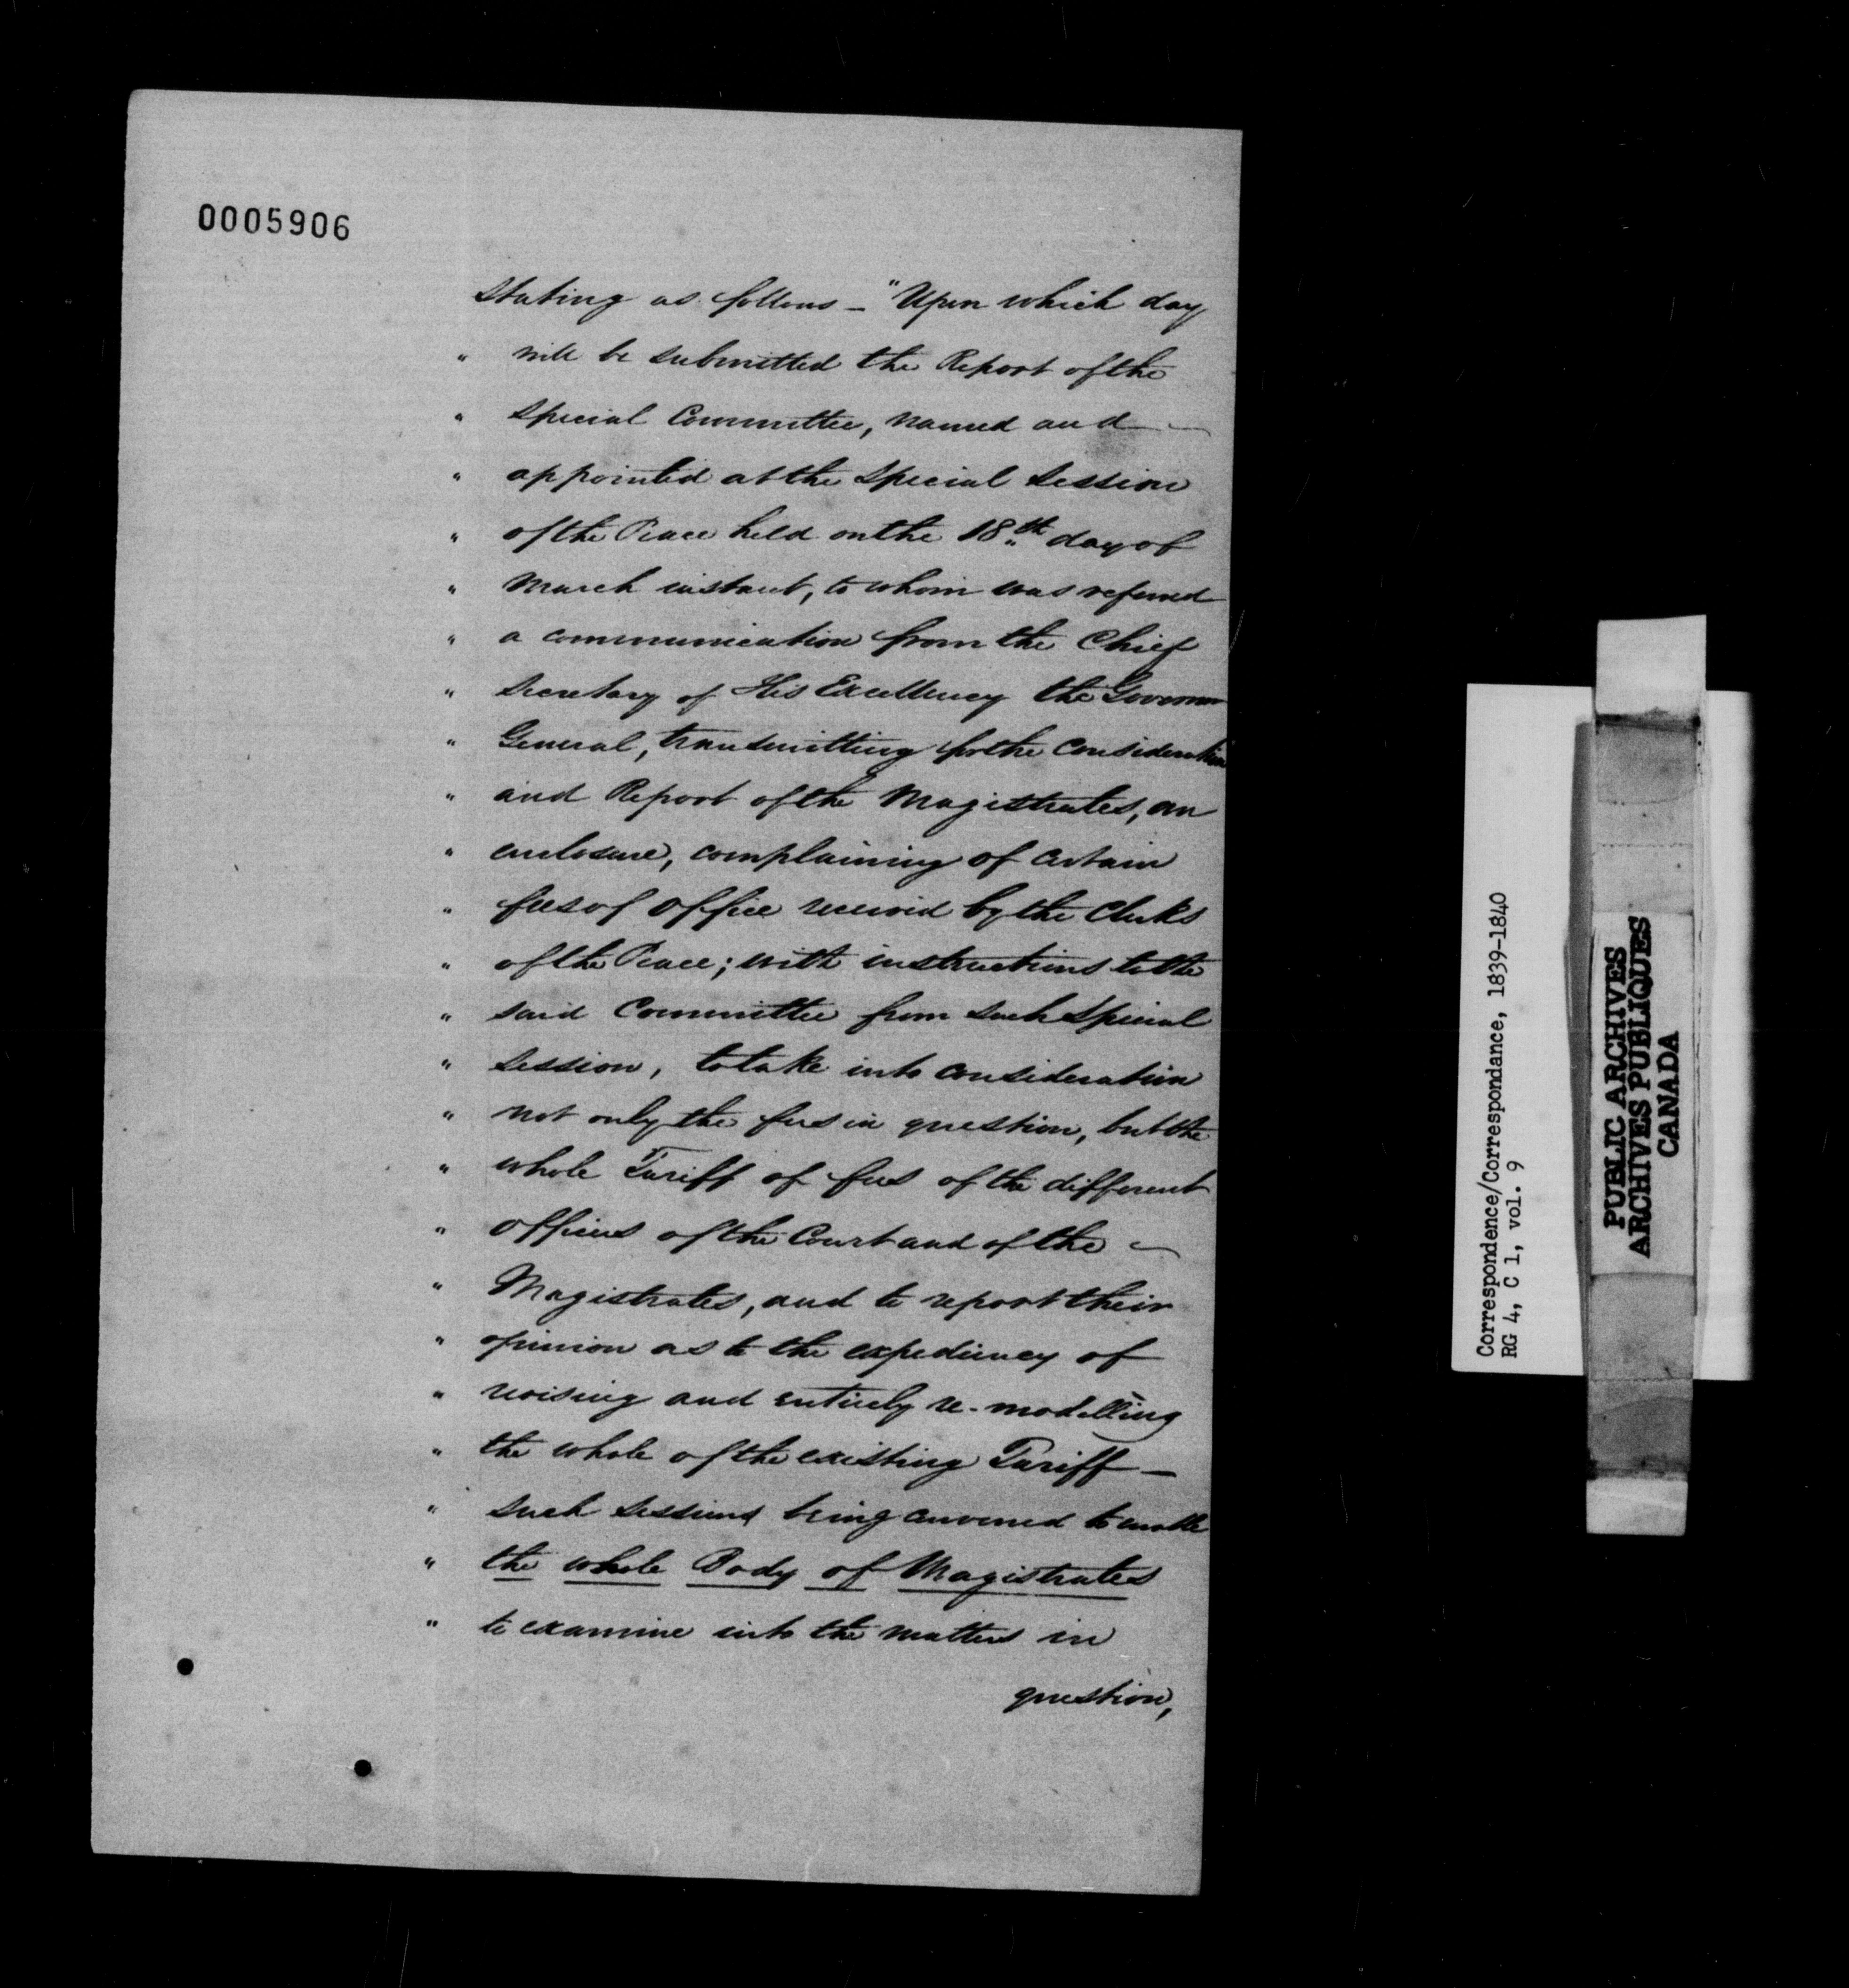 0005906
Stating as follows — "Upon which day
" will be submitted the Report of the
" Special Committee, named and —
" appointed at the Special Session
" of the Peace held on the 18th day of
" March instant, to whom was referred
" a communication from the Chief
" Secretary of His Excellency the Governor
" General, transmitting for the Consideration
" and Report of the Magistrates, an
" enclosure, complaining of certain
" fees of office received by the Clerks
" of the Peace; with instructions to the
" said Committee from such Special
" Session, to take into consideration
" not only the fees in question, but the
" whole Tariff of fees of the different
" Officers of the Court and of the —
" Magistrates, and to report their
" opinion as to the expediency of
" revising and entirely re-modelling
" the whole of the existing Tariff —
" such sessions being convened to enable
" the whole Body of Magistrates
" to examine into the matters in
question,
Correspondence/Correspondance, 1839-1840
RG 4, C 1, vol. 9
PUBLIC ARCHIVES
ARCHIVES PUBLIQUES
CANADA